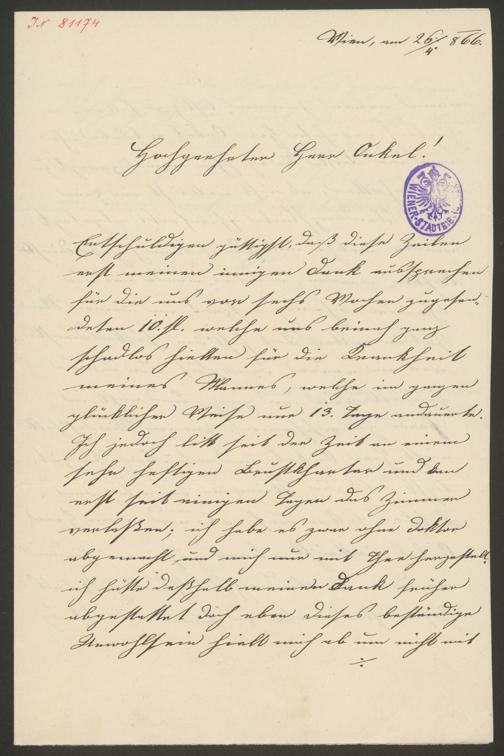 IN 81174
Wien, am 26/4 866.
Hochgeehrter Herr Onkel!
WIENER-STADTBIB
Entschuldigen gütigst, daß diese Zeilen
erst meinen innigen Dank aussprechen
für die uns vor sechs Wochen zugesen-
deten 10. fl. welche uns beinah ganz
schadlos hielten für die Krankheit
meines Mannes, welche im ganzen
glücklicher Weise nur 13. Tage andauerte.
Ich jedoch litt seit der Zeit an einem
sehr heftigen Brustkhartar und kan
erst seit einigen Tagen das Zimmer
verlaßen; ich habe es zwar ohne Doktor
abgemacht und mich nur mit Thee hergestellt.
ich hätte deßhalb meinen Dank früher
abgestattet doch eben dieses beständige
Unwohlsein hielt mich ab um nicht mit